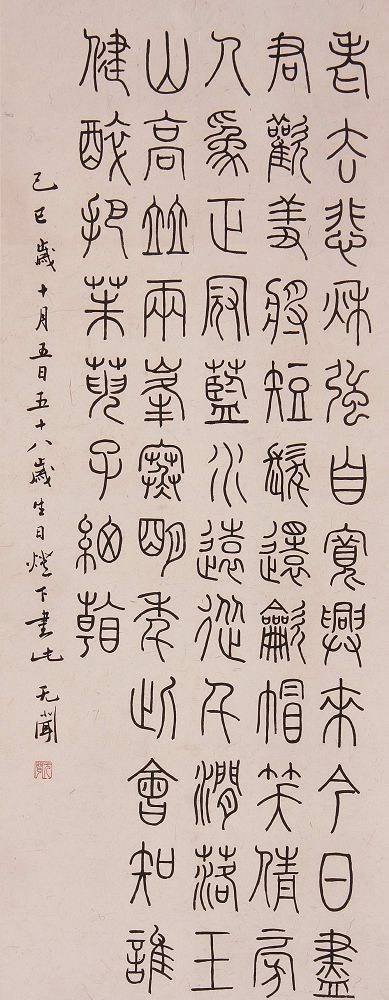 老去悲秋強自寬興來今日盡
君歡羞將短髮還龡帽笑倩旁
人為正冠藍水遠從千澗落玉
山高並兩峯寒明年此會知誰
健醉把茱萸子細看
己巳歲十月五日五十八歲生日燈下書此 无聞